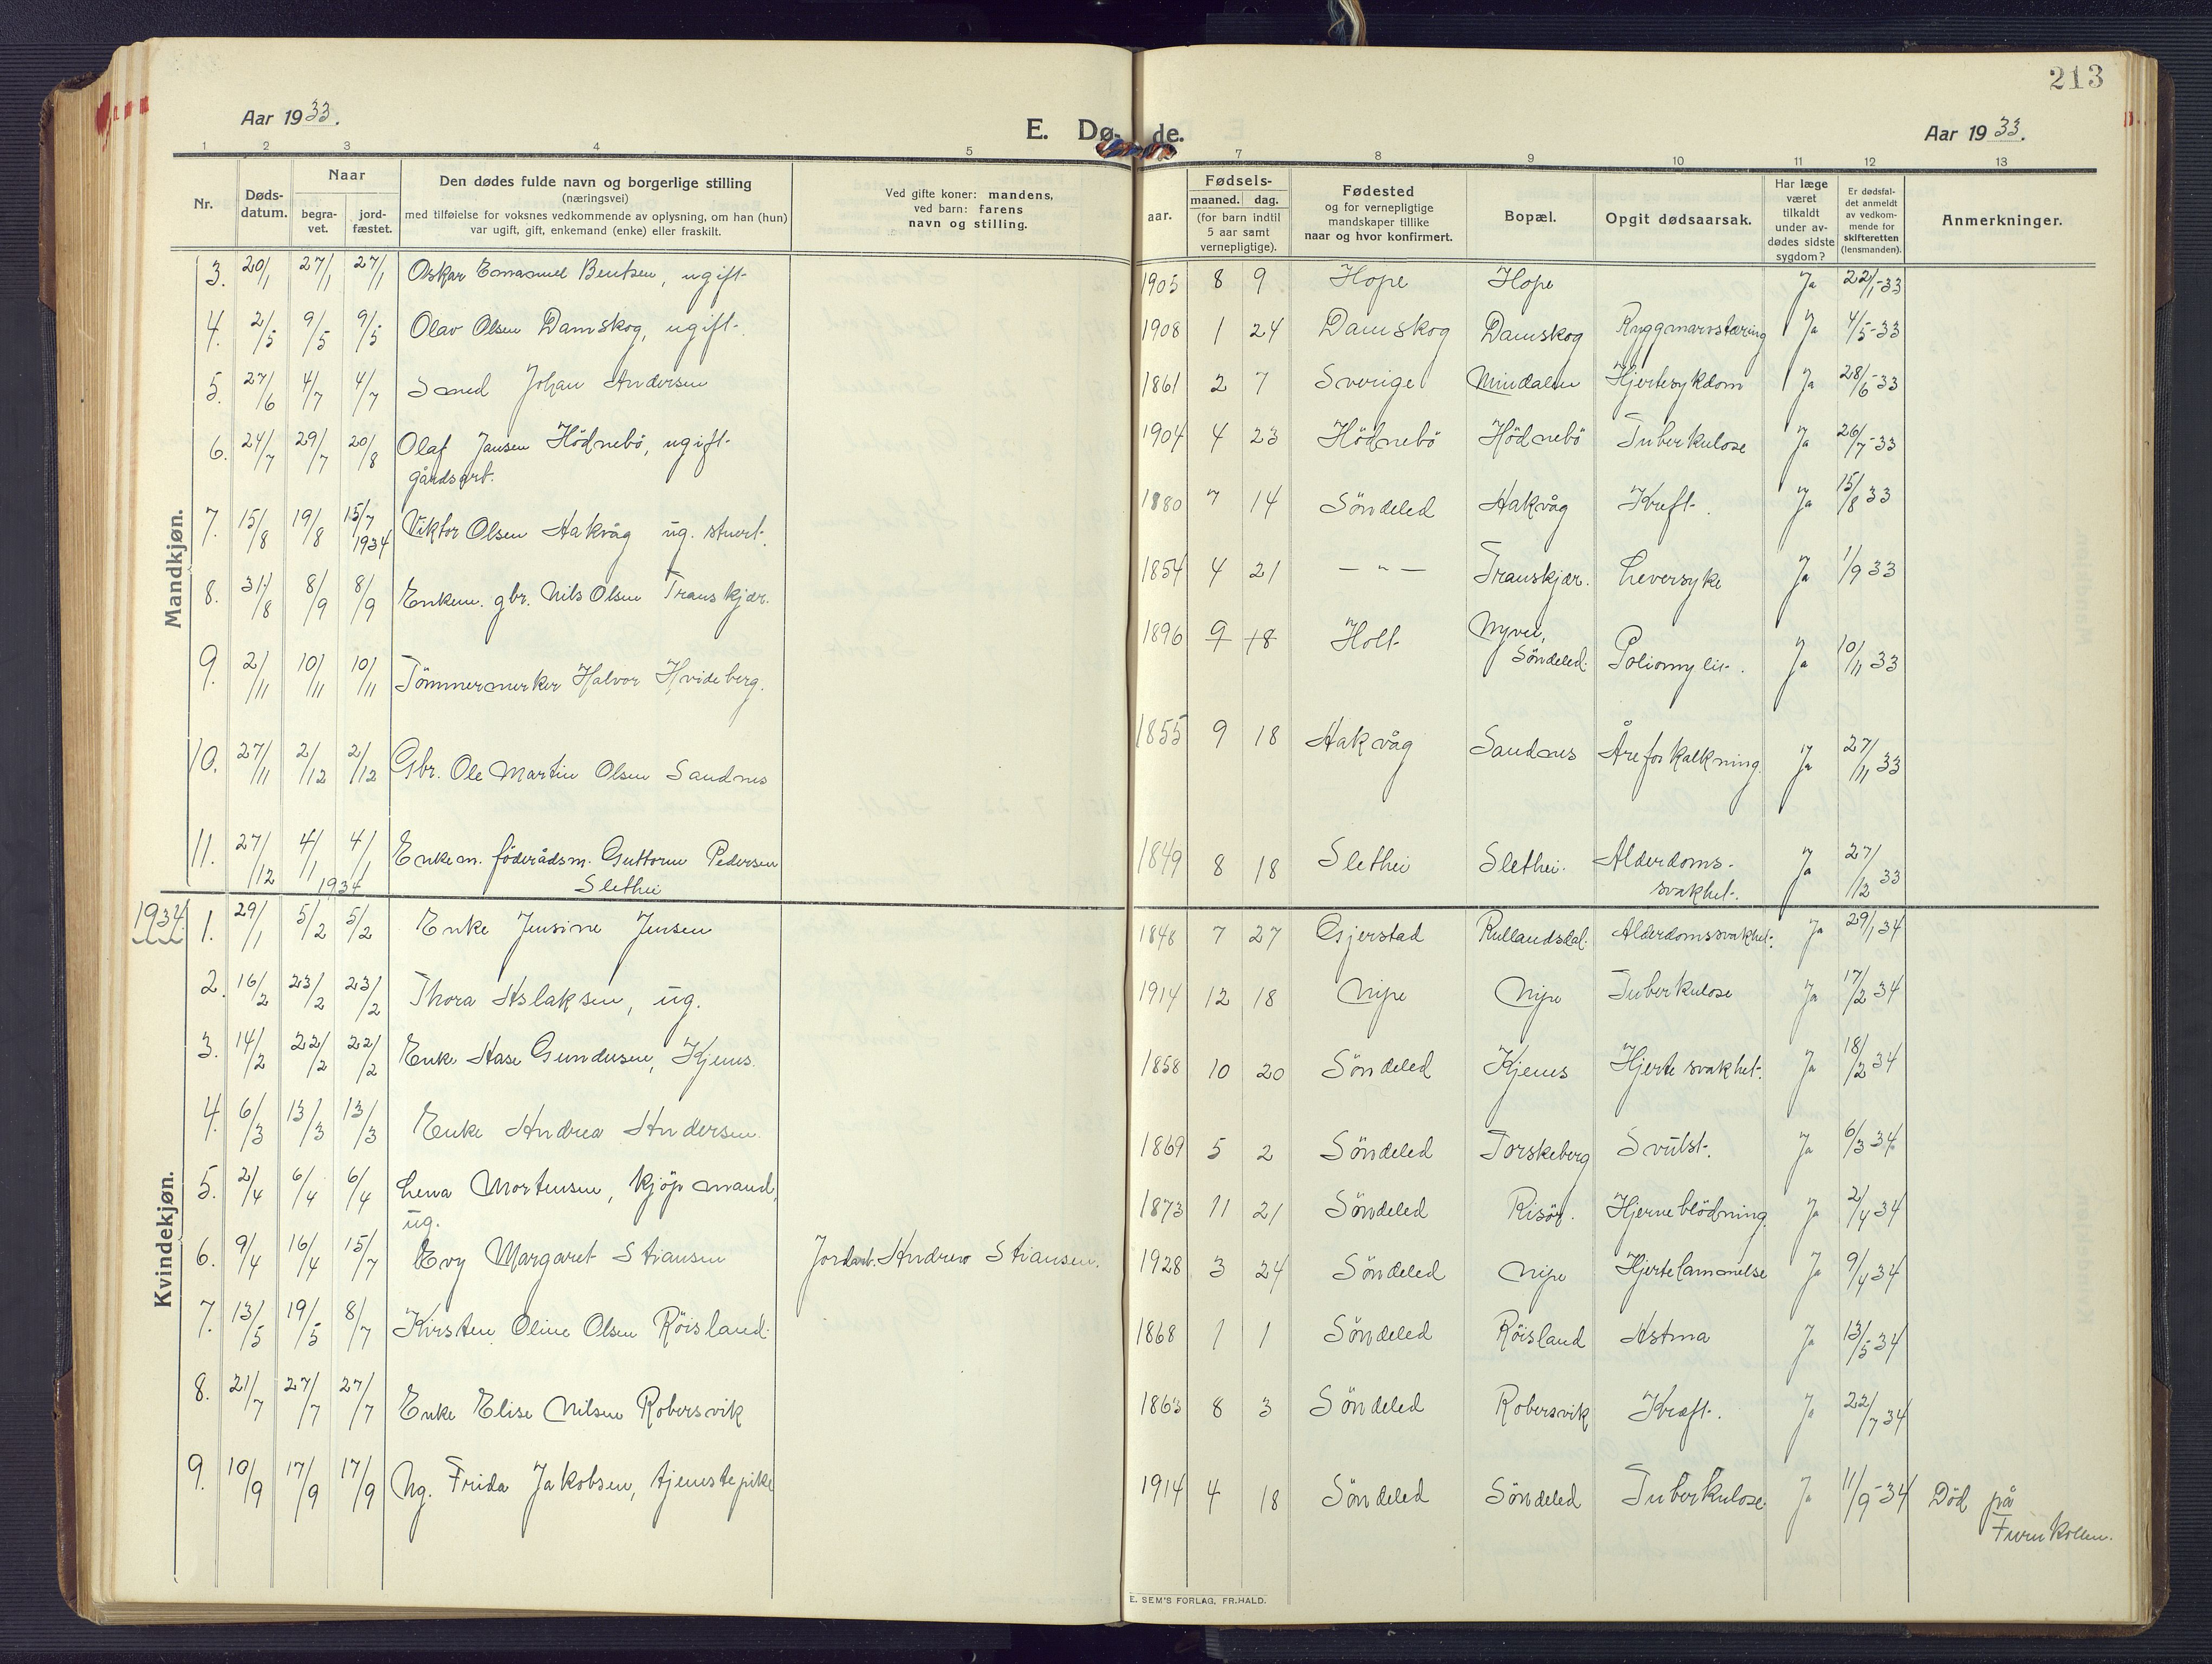 213
Aar 1933.
E. Dø-de.
Aar 1933.
1 2 3 4 5 7 8 9 10 11 12 13
Nr.
Døds-datum.
Naar
begra-vet.
jord-fæstet.
Den dødes fulde navn og borgerlige stilling
(næringsvei)
med tilføielse for voksnes vedkommende av oplysning, om han (hun)
var ugift, gift, enkemand (enke) eller fraskilt.
Ved gifte koner: mandens,
ved barn: farens
navn og stilling.
Fødsels-
aar.
maaned. dag.
(for barn indtil
5 aar samt
vernepligtige).
Fødested
og for vernepligtige
mandskaper tillike
naar og hvor konfirmert.
Bopæl.
Opgit dødsaarsak.
Har læge
været
tilkaldt
under av-
dødes sidste
sygdom?
Er dødsfal-
det anmeldt
av vedkom-
mende for
skifteretten
(lensmanden).
Anmerkninger.
Mandkjøn.
3. 20/1 27/1 27/1 Oskar Emanuel Bentsen, ugift. 1905 8 9 Hope Hope Ja 22/1-33
4. 2/5 9/5 9/5 Olav Olsen Damskog, ugift. 1908 1 24 Damskog Damskog Ryggmarvstæring Ja 4/5-33
5. 27/6 4/7 4/7 Smed Johan Andersen 1861 2 7 Sverige Mindalen Hjertesykdom Ja 28/6-33
6. 24/7 29/7 20/8 Olaf Jansen Hödnebö, ugift. 1904 4 23 Hödnebö Hödnebö Tuberkulose Ja 26/7-33
gårdsarb.
7. 15/8 19/8 15/7 1934 Viktor Olsen Hakvåg ug. stuert. 1880 7 14 Söndeled Hakvåg Kreft. Ja 15/8 33
8. 31/8 8/9 8/9 Enkem. gbr. Nils Olsen Transkjær. 1854 4 21 — " — Transkjær. Leversyke Ja 1/9 33
9. 2/11 10/11 10/11 Tömmermerker Halvor Hvideberg. 1896 9 18 Holt Nyvei, Söndeled. Poliomylit. Ja 10/11 33
10. 27/11 2/12 2/12 Gbr. Ole Martin Olsen Sandnes 1855 9 18 Hakvåg Sandnes Åreforkalkning. Ja 27/11 33
11. 27/12 4/1 4/1 1934 Enkem. föderådsm. Guttorm Pedersen 1849 8 18 Slethei Slethei. Alderdoms-svakhet. Ja 27/12 33
Slethei
1934.
Kvindekjøn.
1. 29/1 5/2 5/2 Enke Jensine Jensen 1848 7 27 Gjerstad Rullandsdal. Alderdomssvakhet. Ja 29/1 34
2. 16/2 23/2 23/2 Thora Aslaksen, ug. 1914 12 18 Nipe Nipe Tuberkulose Ja 17/2 34
3. 14/2 22/2 22/2 Enke Aase Gundersen, Kjens. 1858 10 20 Söndeled Kjens Hjertesvakhet. Ja 18/2 34
4. 6/3 13/3 13/3 Enke Andrea Andersen. 1869 5 2 Söndeled Torskeberg Svulst. Ja 6/3 34
5. 2/4 6/4 6/4 Lena Mortensen, kjöpmand, 1873 11 21 Söndeled Risör. Hjerneblödning Ja 2/4 34
ug.
6. 9/4 16/4 15/7 Evy Margaret Stiansen Jordarb. Andrew Stiansen. 1928 3 24 Söndeled Nipe Hjertelammelse Ja 9/4 34
7. 13/5 19/5 8/7 Kirsten Oline Olsen Röisland. 1868 1 1 Söndeled Röisland Astma Ja 13/5 34
8. 21/7 27/7 27/7 Enke Elise Nilsen Robersvik 1863 8 3 Söndeled Robersvik Kræft. Ja 22/7 34
9. 10/9 17/9 17/9 Ug. Frida Jakobsen, tjenestepike 1914 4 18 Söndeled Söndeled Tuberkulose. Ja 11/9-34 Död på
Furukollen.
E. SEM'S FORLAG, FR.HALD.